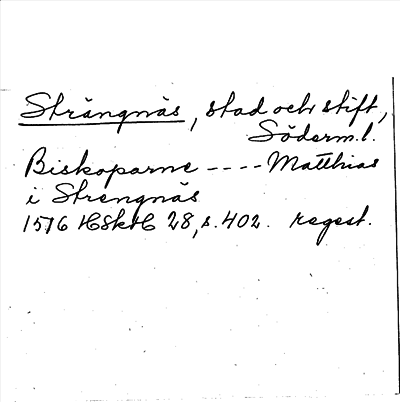 Strängnäs, stad och stift,
Söderm.l.
Biskoparne ---- Matthias
i Strengnäs
1576 HSkH 28, s. 402. regest.